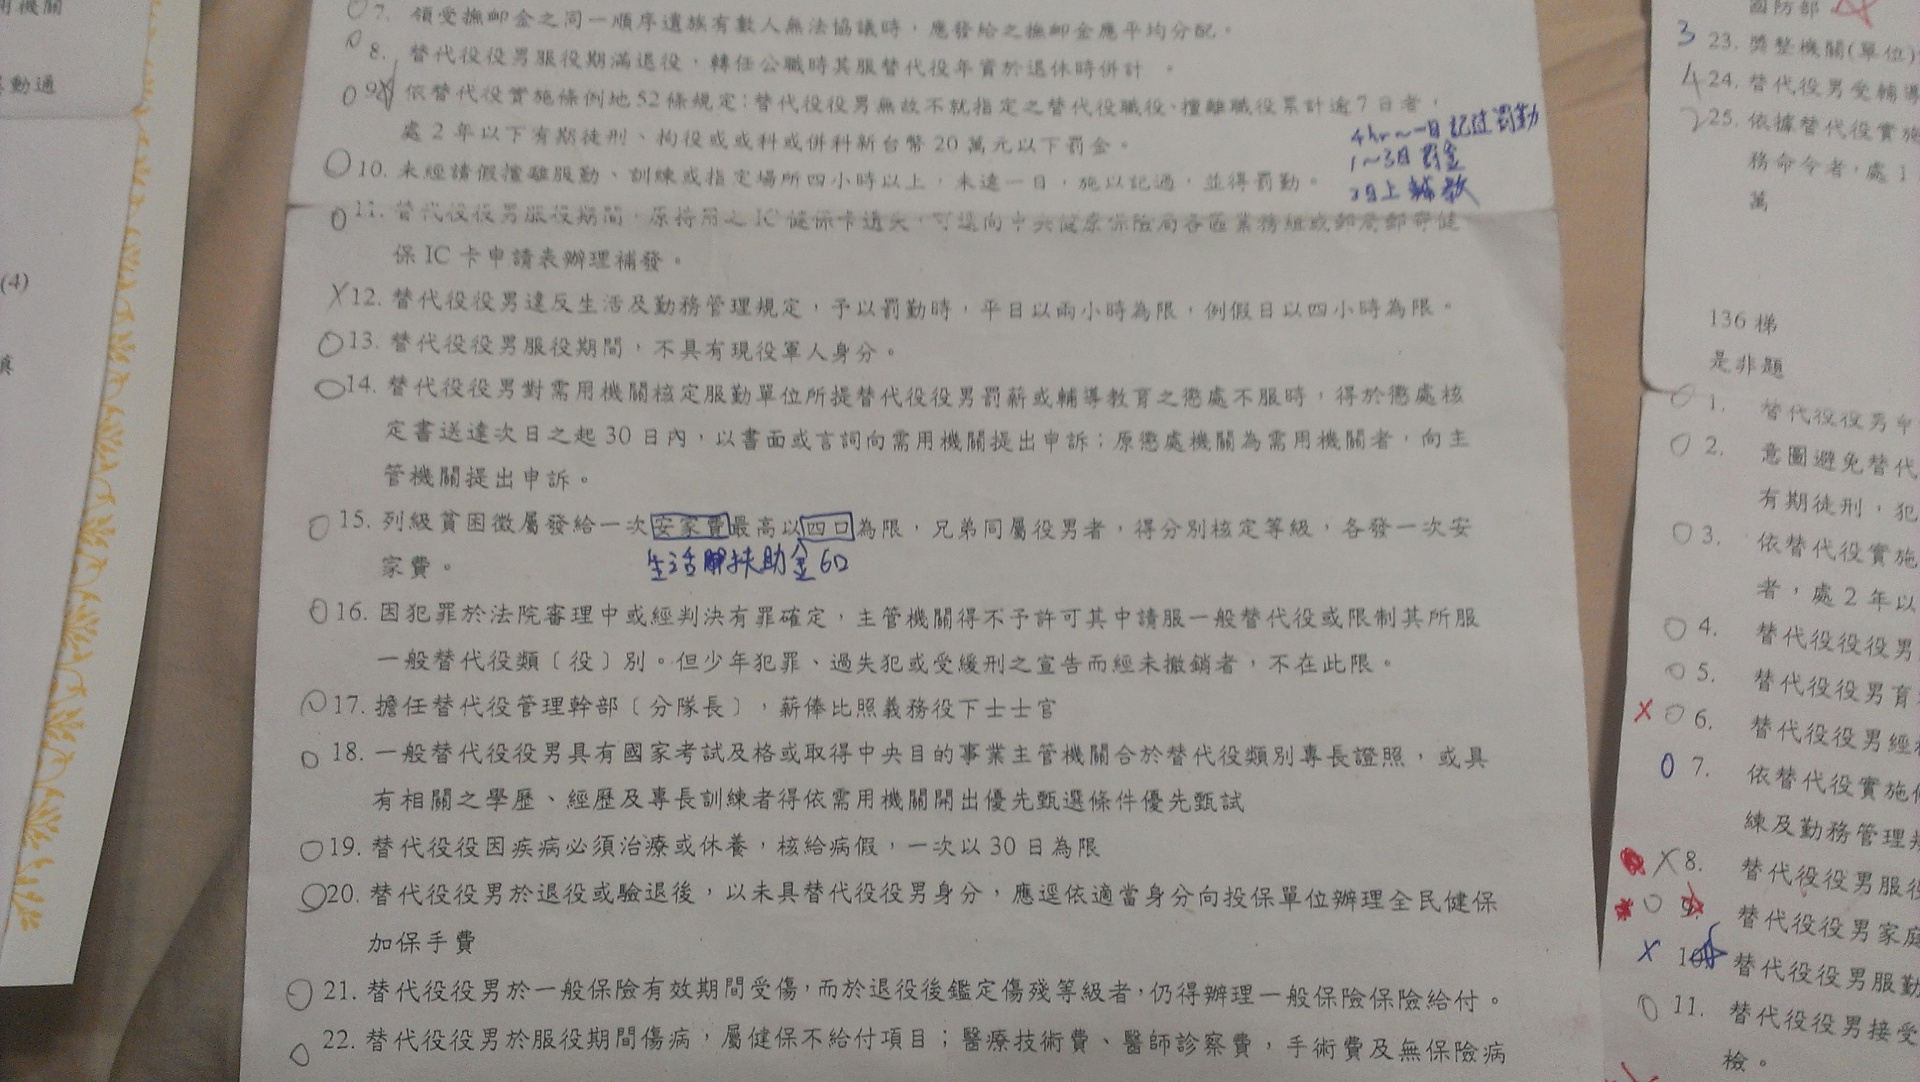 用機關
動通
(4)
7. 領受撫卹金之同一順序遺族有數人無法協議時，應發給之撫卹金應平均分配。
8. 替代役役男服役期滿退役，轉任公職時其服替代役年資於退休時併計 。
9. 依替代役實施條例地52條規定：替代役役男無故不就指定之替代役職役、擅離職役累計逾7日者，
處2年以下有期徒刑、拘役或或科或併科新台幣20萬元以下罰金。
4hr～一日 記過罰勤
1～3日 罰金
3日上 輔教
10. 未經請假擅離服勤、訓練或指定場所四小時以上，未達一日，施以記過，並得罰勤。
11. 替代役役男服役期間，原持用之IC健保卡遺失，可逕向中央健康保險局各區業務組或郵局郵寄健
保IC卡申請表辦理補發。
X 12. 替代役役男違反生活及勤務管理規定，予以罰勤時，平日以兩小時為限，例假日以四小時為限。
13. 替代役役男服役期間，不具有現役軍人身分。
14. 替代役役男對需用機關核定服勤單位所提替代役役男罰薪或輔導教育之懲處不服時，得於懲處核
定書送達次日之起30日內，以書面或言詞向需用機關提出申訴；原懲處機關為需用機關者，向主
管機關提出申訴。
15. 列級貧困徵屬發給一次安家費最高以四口為限，兄弟同屬役男者，得分別核定等級，各發一次安
家費。
生活扶助金6口
16. 因犯罪於法院審理中或經判決有罪確定，主管機關得不予許可其申請服一般替代役或限制其所服
一般替代役類〔役〕別。但少年犯罪、過失犯或受緩刑之宣告而經未撤銷者，不在此限。
17. 擔任替代役管理幹部〔分隊長〕，薪俸比照義務役下士士官
18. 一般替代役役男具有國家考試及格或取得中央目的事業主管機關合於替代役類別專長證照，或具
有相關之學歷、經歷及專長訓練者得依需用機關開出優先甄選條件優先甄試
19. 替代役役因疾病必須治療或休養，核給病假，一次以30日為限
20. 替代役役男於退役或驗退後，以未具替代役役男身分，應逕依適當身分向投保單位辦理全民健保
加保手費
21. 替代役役男於一般保險有效期間受傷，而於退役後鑑定傷殘等級者，仍得辦理一般保險保險給付。
22. 替代役役男於服役期間傷病，屬健保不給付項目；醫療技術費、醫師診察費，手術費及無保險病
國防部
3 23. 獎整機關(單位)
4 24. 替代役男受輔導
2 25. 依據替代役實施
務命令者，處1
萬
136梯
是非題
1. 替代役役男申
2. 意圖避免替代
有期徒刑，犯
3. 依替代役實施
者，處2年以
4. 替代役役役男
5. 替代役役男育
X 6. 替代役役男經
7. 依替代役實施
練及勤務管理
X 8. 替代役役男服役
替代役役男家庭
X 10 替代役役男服勤
11. 替代役役男接受
檢。